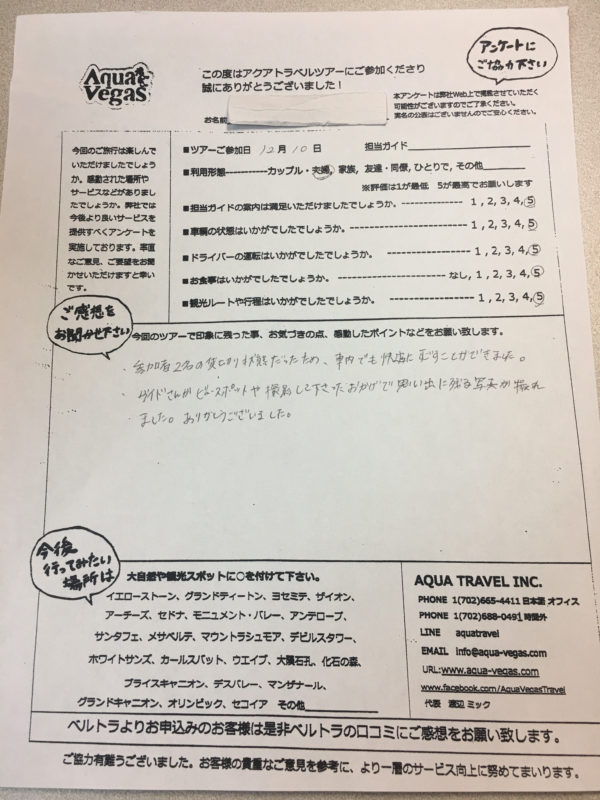 Aqua Vegas
この度はアクアトラベルツアーにご参加くださり
誠にありがとうございました！
アンケートに
ご協力下さい
本アンケートは弊社Web上で掲載させていただく
可能性がございますのでご了承ください。
実名の公表はございませんのでご安心ください。
お名前
今回のご旅行は楽しんで
いただけましたでしょう
か。感動された場所や
サービスなどがありまし
たでしょうか。弊社では
今後より良いサービスを
提供すべくアンケートを
実施しております。率直
なご意見、ご要望をお聞
かせいただけますと幸い
です。
■ツアーご参加日 12月10日 担当ガイド
■利用形態-----------カップル・夫婦, 家族, 友達・同僚, ひとりで, その他
※評価は1が最低 5が最高でお願いします
■担当ガイドの案内は満足いただけましたでしょうか。--------------- 1 , 2, 3, 4, 5
■車輌の状態はいかがでしたでしょうか。 ----------------------------- 1 , 2, 3, 4, 5
■ドライバーの運転はいかがでしたでしょうか。 --------------------- 1 , 2, 3, 4, 5
■お食事はいかがでしたでしょうか。 ------------------------- なし, 1, 2, 3, 4, 5
■観光ルートや行程はいかがでしたでしょうか。 --------------------- 1, 2, 3, 4, 5
ご感想を
お聞かせ下さい
今回のツアーで印象に残った事、お気づきの点、感動したポイントなどをお願い致します。
・参加者2名の貸切り状態だったため、車内でも快適に過ごすことができました。
・ガイドさんがビュースポットや撮影して下さったおかげで思い出に残る写真が撮れ
ました。ありがとうございました。
今後
行ってみたい
場所は
大自然や観光スポットに○を付けて下さい。
イエローストーン、グランドティートン、ヨセミテ、ザイオン、
アーチーズ、セドナ、モニュメント・バレー、アンテロープ、
サンタフェ、メサベルデ、マウントラシュモア、デビルスタワー、
ホワイトサンズ、カールスバット、ウエイブ、大隕石孔、化石の森、
ブライスキャニオン、デスバレー、マンザナール、
グランドキャニオン、オリンピック、セコイア その他
AQUA TRAVEL INC.
PHONE 1(702)665-4411 日本語 オフィス
PHONE 1(702)688-0491 時間外
LINE aquatravel
EMAIL info@aqua-vegas.com
URL:www.aqua-vegas.com
www.facebook.com/AquaVegasTravel
代表 渡辺 ミック
ベルトラよりお申込みのお客様は是非ベルトラの口コミにご感想をお願い致します。
ご協力有難うございました。お客様の貴重なご意見を参考に、より一層のサービス向上に努めてまいります。